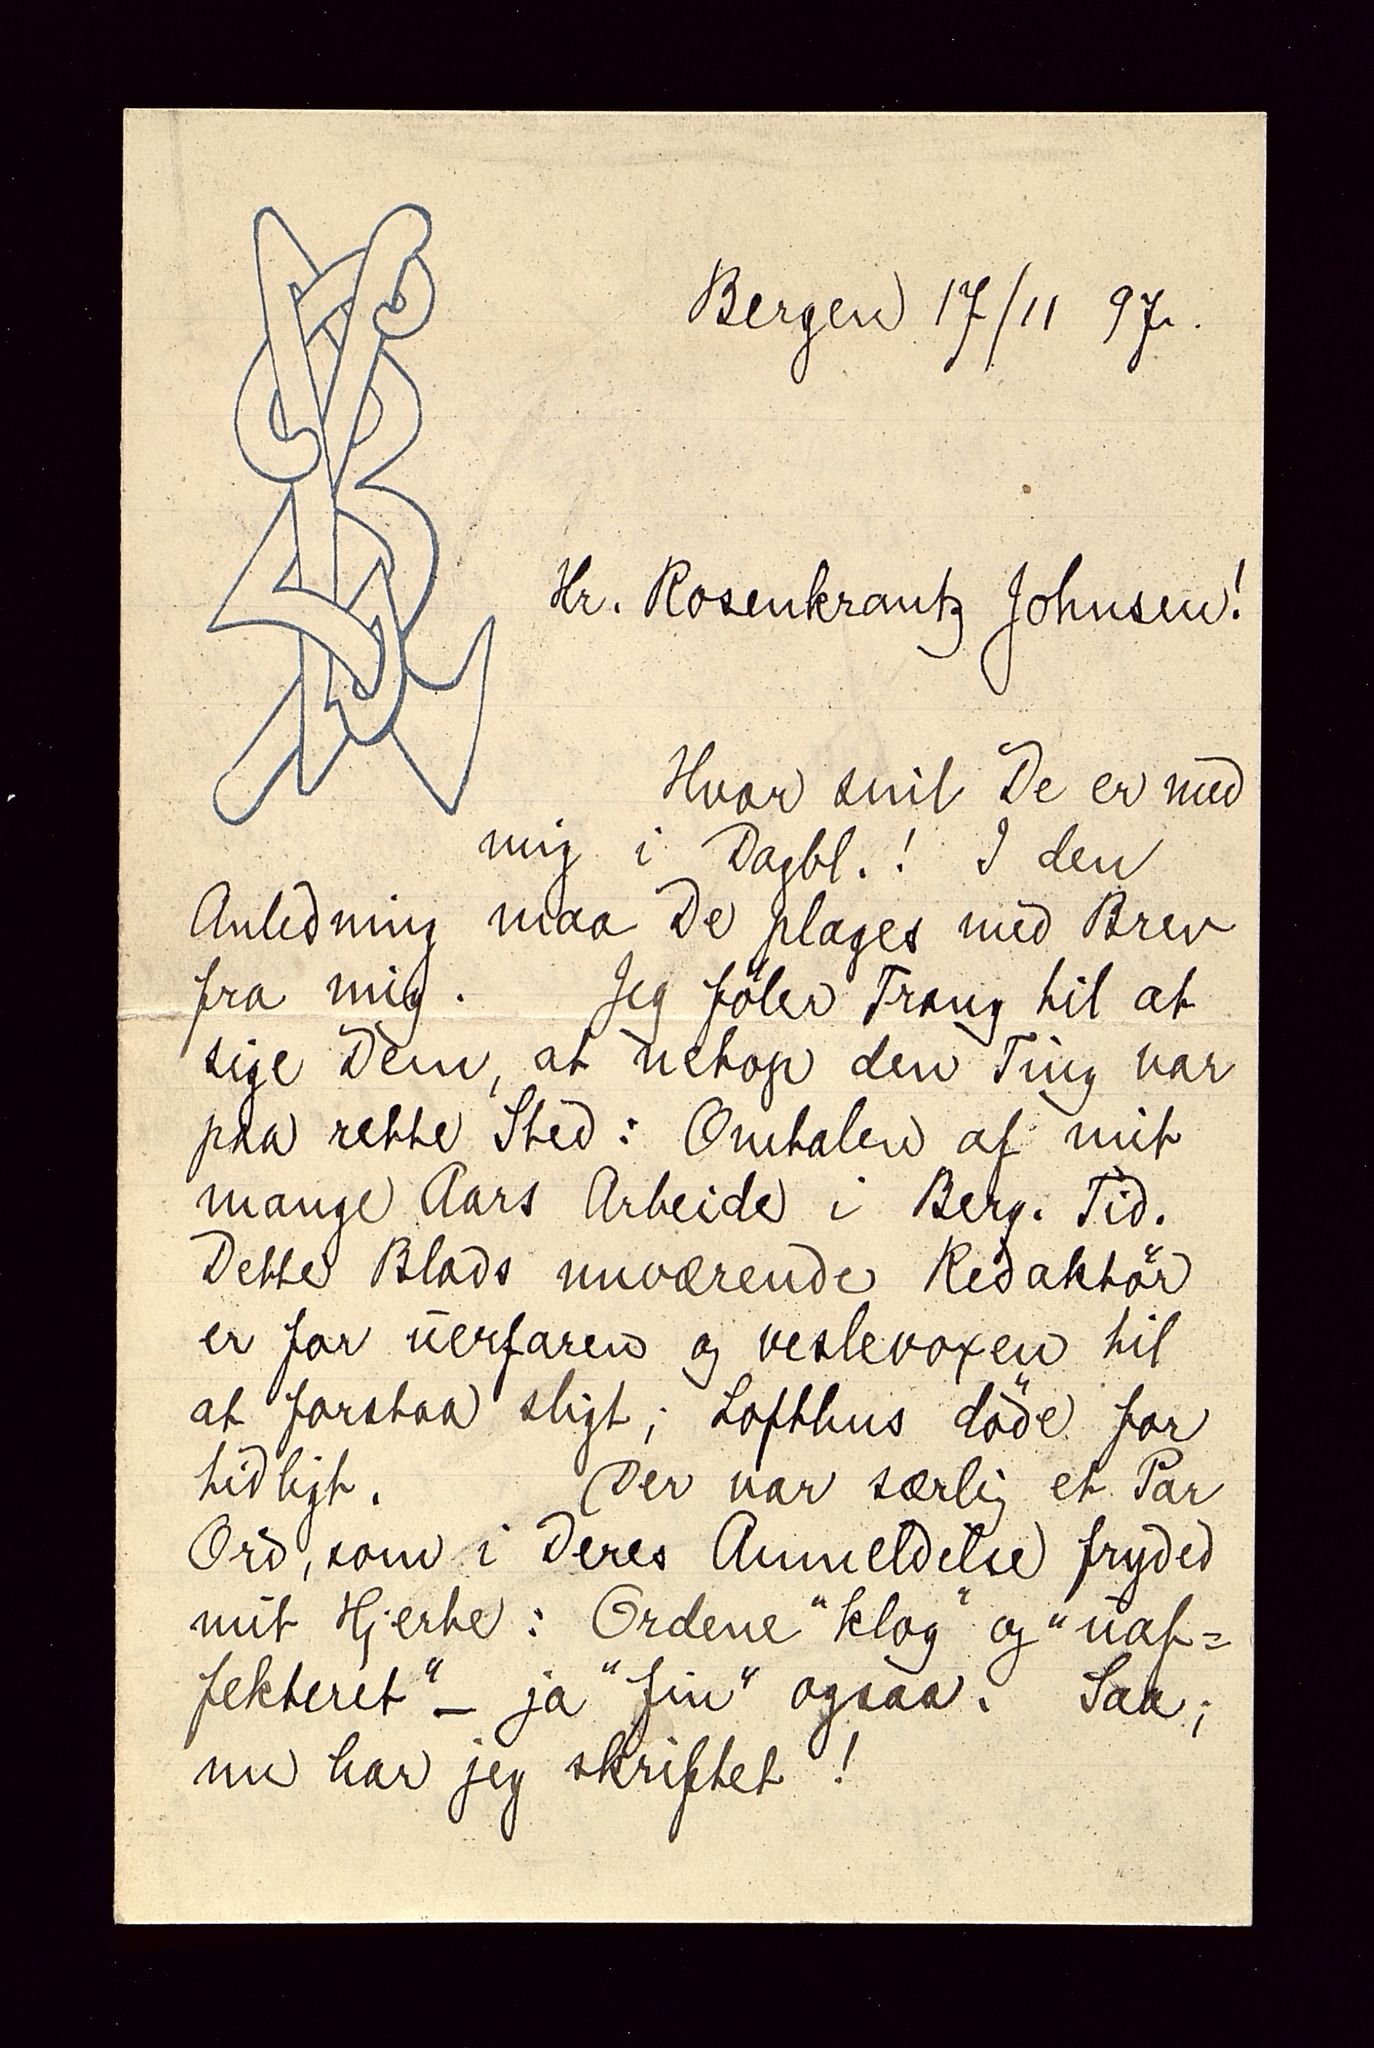 Bergen 17/11 97.
Hr. Rosenkrantz Johnsen!
Hvor snil De er med
mig i Dagbl.! I den
Anledning maa De plages med Brev
fra mig. Jeg föler Trang til at
sige Dem, at netop den Ting var
paa rette Sted: Omtalen af mit
mange Aars Arbeide i Berg. Tid.
Dette Blads nuværende Redaktör
er for uerfaren og veslevoxen til
at forstaa sligt; Lofthus döde for
tidligt. Der var særlig et Par
Ord, som i Deres Anmeldelse fryded
mit Hjerte: Ordene "klog" og "uaf=
fekteret" – ja "fin" ogsaa. Saa;
nu har jeg skriftet!